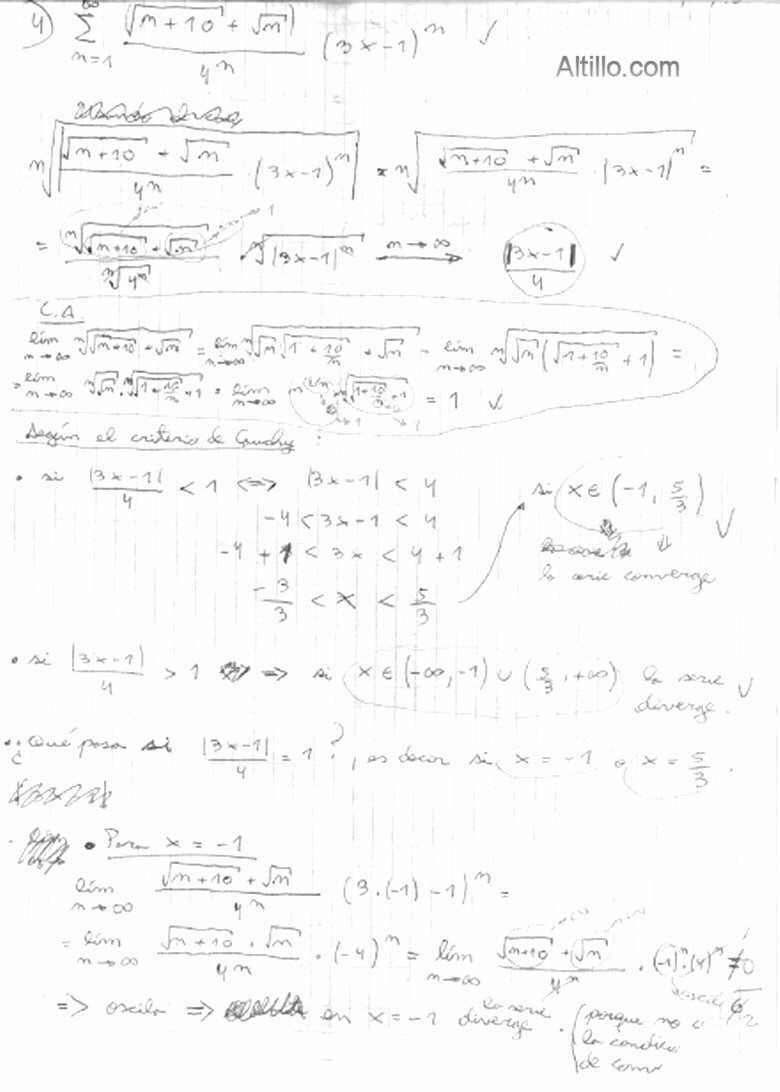 4) ∑_{n=1}^{∞} (√(n+10) + √n)/4^n (3x-1)^n ✓
Altillo.com
ⁿ√|(√(n+10) + √n)/4^n · (3x-1)^n| = ⁿ√((√(n+10) + √n)/4^n · |3x-1|^n) =
= ⁿ√(√(n+10) + √n)/ⁿ√(4^n) · ⁿ√(|3x-1|^n) → (n→∞) |3x-1|/4 ✓
→ 1
C.A.
lím_{n→∞} ⁿ√(√(n+10) + √n) = lím_{n→∞} ⁿ√(√n √(1+10/n) + √n) = lím_{n→∞} ⁿ√(√n (√(1+10/n) + 1)) =
= lím_{n→∞} ⁿ√√n · ⁿ√(√(1+10/n) + 1) = lím_{n→∞} = 1 ✓
Según el criterio de Cauchy
• si |3x-1|/4 < 1 <=> |3x-1| < 4
si x ∈ (-1, 5/3) ✓
-4 < 3x-1 < 4
-4 + 1 < 3x < 4 + 1
⇓
la serie converge
-3/3 < x < 5/3
• si |3x-1|/4 > 1 => si x ∈ (-∞, -1) ∪ (5/3, +∞) la serie ✓
diverge.
• ¿Qué pasa si |3x-1|/4 = 1?, es decir si x = -1 o x = 5/3.
• Para x = -1
lím_{n→∞} (√(n+10) + √n)/4^n (3·(-1) - 1)^n =
= lím_{n→∞} (√(n+10) + √n)/4^n · (-4)^n = lím_{n→∞} (√(n+10) + √n)/4^n · (-1)^n · (4)^n ≠ 0
oscila
=> oscila => en x = -1 la serie diverge. (porque no
la condición
de